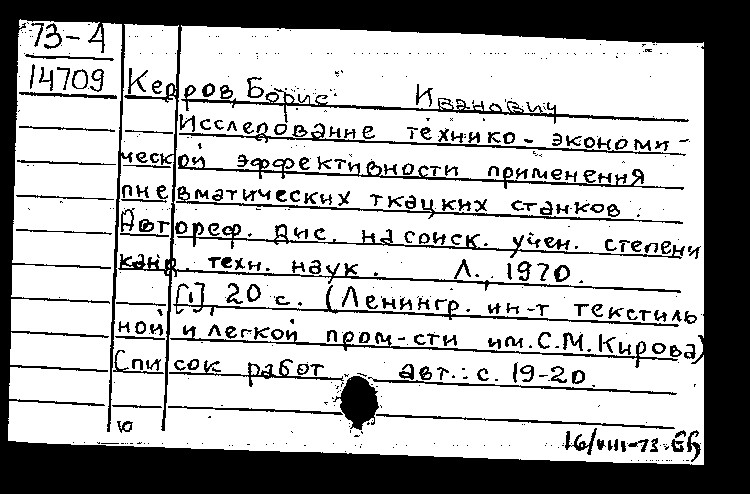 73-А
14709 Керров, Борис Иванович
Исследование технико-экономи-
ческой эффективности применения
пневматических ткацких станков.
Автореф. дис. на соиск. учен. степени
канд. техн. наук. Л., 1970.
[1], 20 с. (Ленингр. ин-т текстиль
ной и легкой пром-сти им. С.М. Кирова)
Список работ авт.: с. 19-20.
10
16/VIII-73